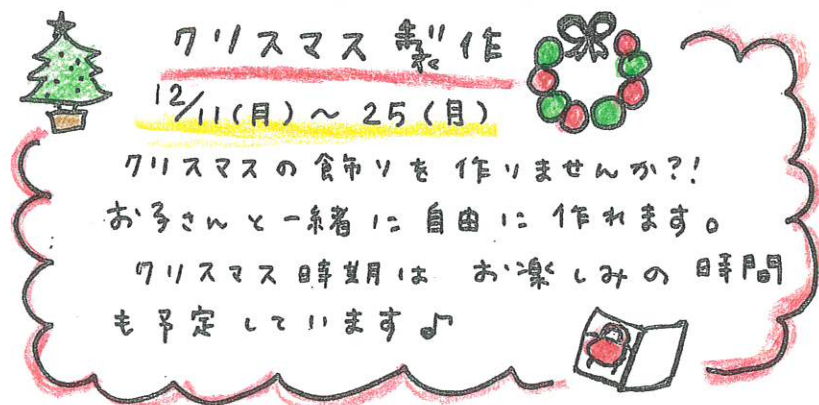 クリスマス製作
12/11(月)~25(月)
クリスマスの飾りを作りませんか?!
お子さんと一緒に自由に作れます。
クリスマス時期は お楽しみの時間
も予定しています♪